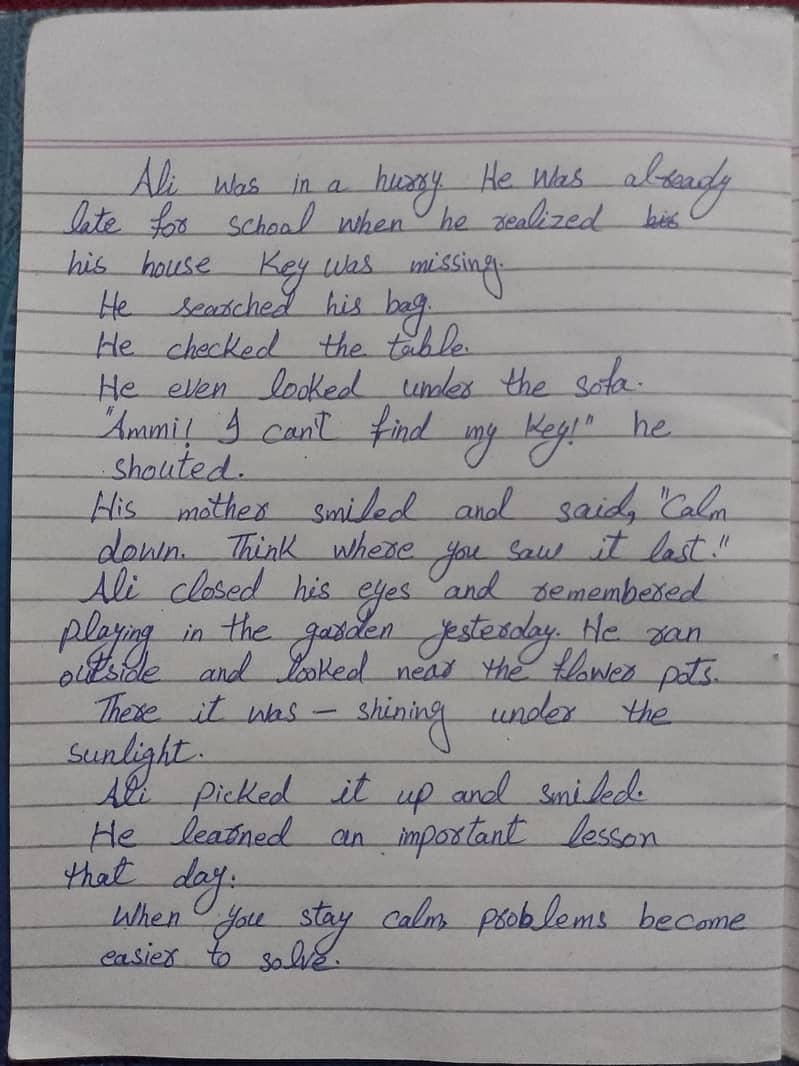 Ali was in a hurry. He was already
late for school when he realized his
his house key was missing.
He searched his bag.
He checked the table.
He even looked under the sofa.
"Ammi! I can't find my key!" he
shouted.
His mother smiled and said, "Calm
down. Think where you saw it last."
Ali closed his eyes and remembered
playing in the garden yesterday. He ran
outside and looked near the flower pots.
There it was – shining under the
sunlight.
Ali picked it up and smiled.
He learned an important lesson
that day:
When you stay calm, problems become
easier to solve.